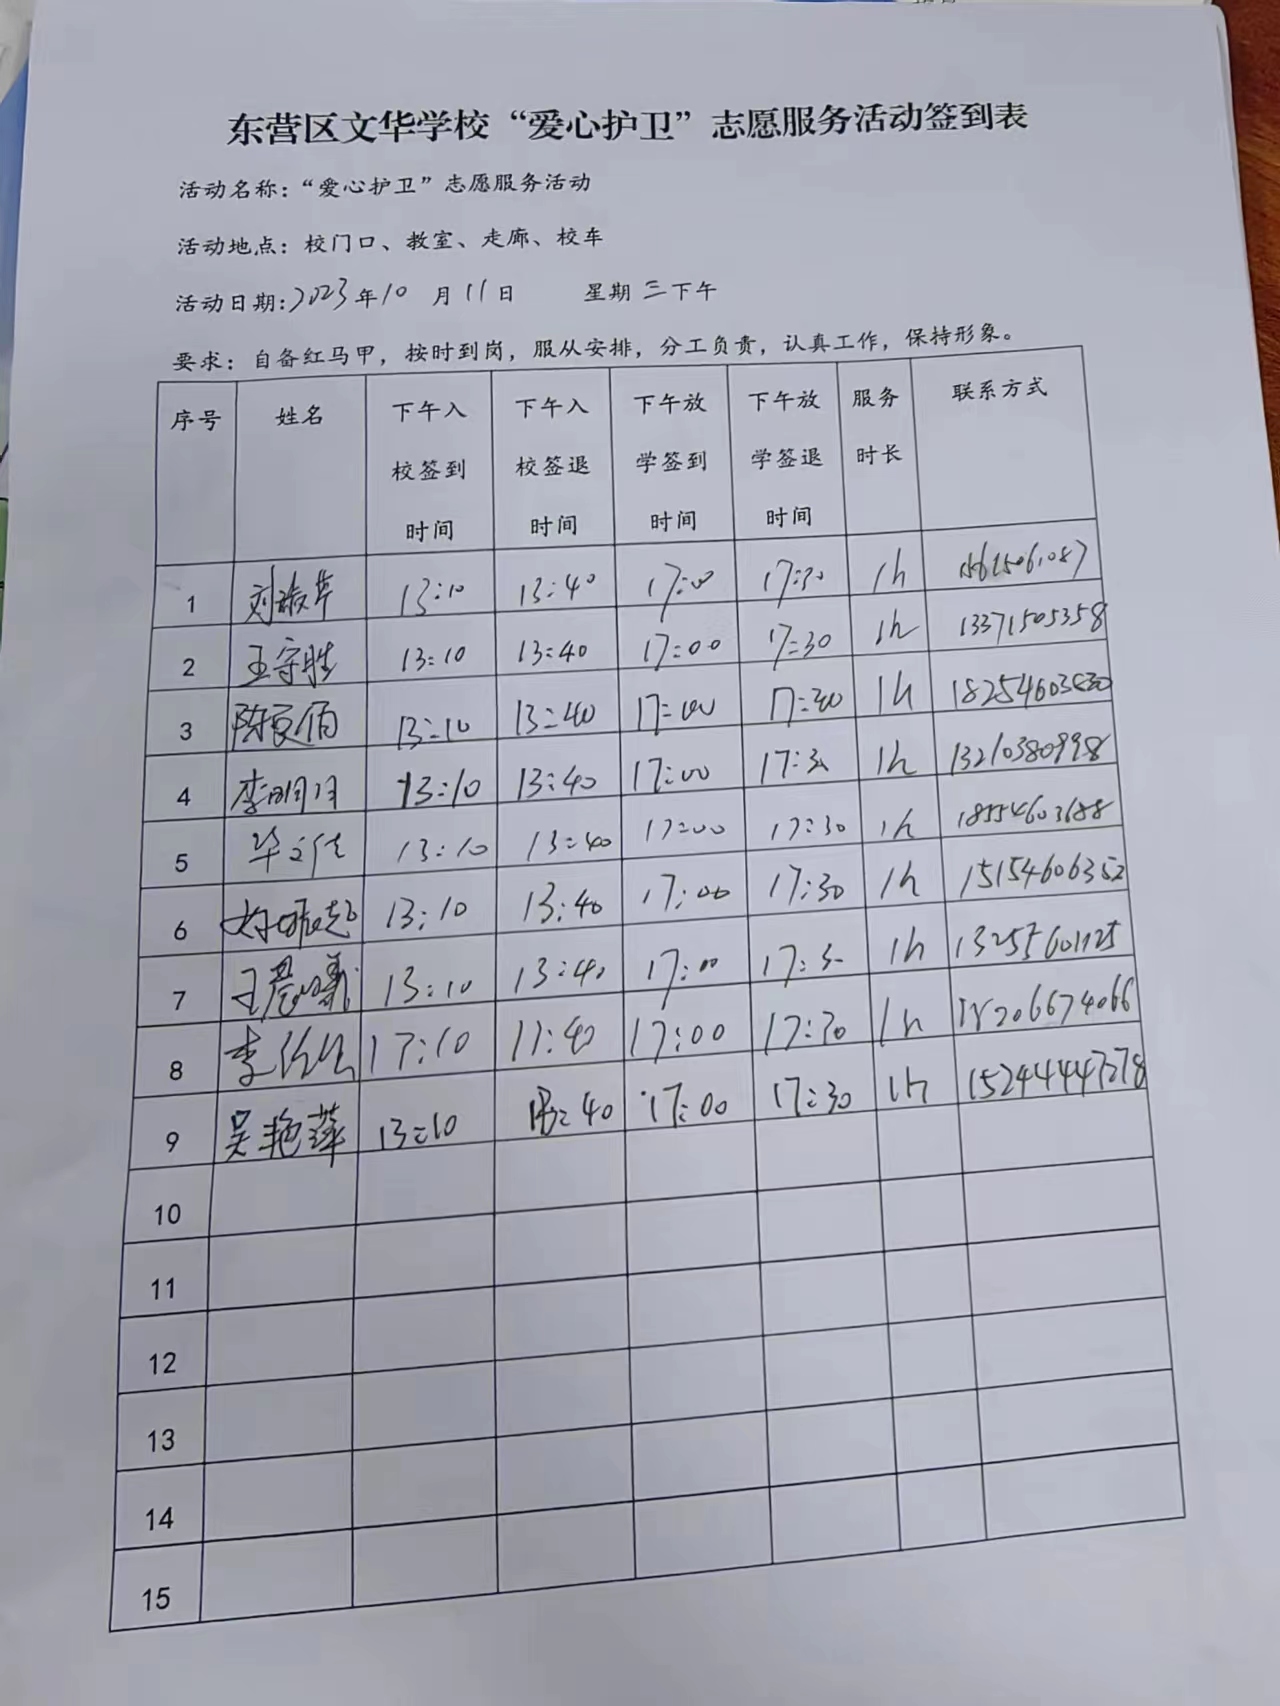 东营区文华学校“爱心护卫”志愿服务活动签到表
活动名称：“爱心护卫”志愿服务活动
活动地点：校门口、教室、走廊、校车
活动日期：2023年10月11日 星期三下午
要求：自备红马甲，按时到岗，服从安排，分工负责，认真工作，保持形象。
序号 姓名 下午入校签到时间 下午入校签退时间 下午放学签到时间 下午放学签退时间 服务时长 联系方式
1 13:10 13:40 17:00 17:30 1h
2 王守胜 13:10 13:40 17:00 17:30 1h 13371505358
3 13:10 13:40 17:00 17:30 1h
4 李明月 13:10 13:40 17:00 17:30 1h 13210380998
5 13:10 13:40 17:00 17:30 1h 18554603688
6 13:10 13:40 17:00 17:30 1h 15154606352
7 王晨曦 13:10 13:40 17:00 17:30 1h 13255601125
8 17:10 17:40 17:00 17:30 1h 18206674066
9 吴艳萍 13:10 13:40 17:00 17:30 1h 15244447278
10
11
12
13
14
15